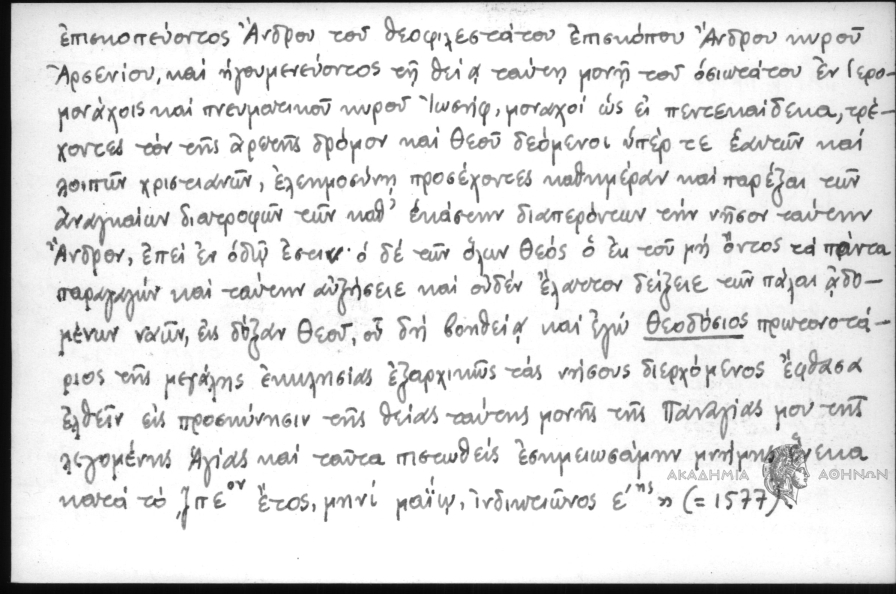 ἐπισκοπεύοντος Ἄνδρου τοῦ θεοφιλεστάτου ἐπισκόπου Ἄνδρου κυροῦ
Ἀρσενίου, καί ἡγουμενεύοντος τῇ θείᾳ ταύτῃ μονῇ τοῦ ὁσιωτάτου ἐν Ἱερο-
μονάχοις καί πνευματικοῦ κυροῦ Ἰωσήφ, μοναχοί ὡς εἰ πεντεκαίδεκα, τρέ-
χοντες τόν τῆς ἀρετῆς δρόμον καί Θεοῦ δεόμενοι ὑπέρ τε ἑαυτῶν καί
λοιπῶν χριστιανῶν, ἐλεημοσύνῃ προσέχοντες καθημέραν καί παρέξαι τῶν
ἀναγκαίων διατροφῶν τῶν καθ' ἑκάστην διαπερόντων τήν νῆσον ταύτην
Ἄνδρον, ἐπεί ἐν ὁδῷ ἐστιν· ὁ δέ τῶν ὅλων Θεός ὁ ἐκ τοῦ μή ὄντος τά πάντα
παραγαγών καί ταύτην αὐξήσειε καί οὐδέν ἔλαττον δείξειε τῶν πάλαι ᾀδο-
μένων ναῶν, εἰς δόξαν Θεοῦ, οὗ δή βοηθείᾳ καί ἐγώ Θεοδόσιος πρωτονοτά-
ριος τῆς μεγάλης ἐκκλησίας ἐξαρχικῶς τάς νήσους διερχόμενος ἔφθασα
ἐλθεῖν εἰς προσκύνησιν τῆς θείας ταύτης μονῆς τῆς Παναγίας μου τῆς
λεγομένης Ἁγίας καί ταῦτα πιστωθείς ἐσημειωσάμην μνήμης ἕνεκα
κατά τό ͵ζπε^ον ἔτος, μηνί μαΐῳ, ἰνδικτιῶνος ε´^ης » (= 1577).
ΑΚΑΔΗΜΙΑ ΑΘΗΝΩΝ